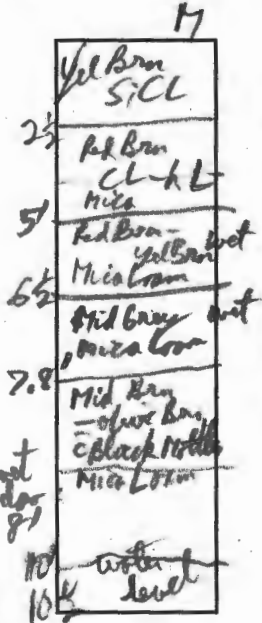 M
Yel Brn
SiCL
2½
Red Brn
CL-hL
Mica
5'
Red Brn-
Yel Brn wet
Mica Loam
6½
Mid Gray wet
Mica Loam
7.8
Mid Brn
-olive Brn
c Black Mottles
Mica Loam
8'
10'
water
level
10½